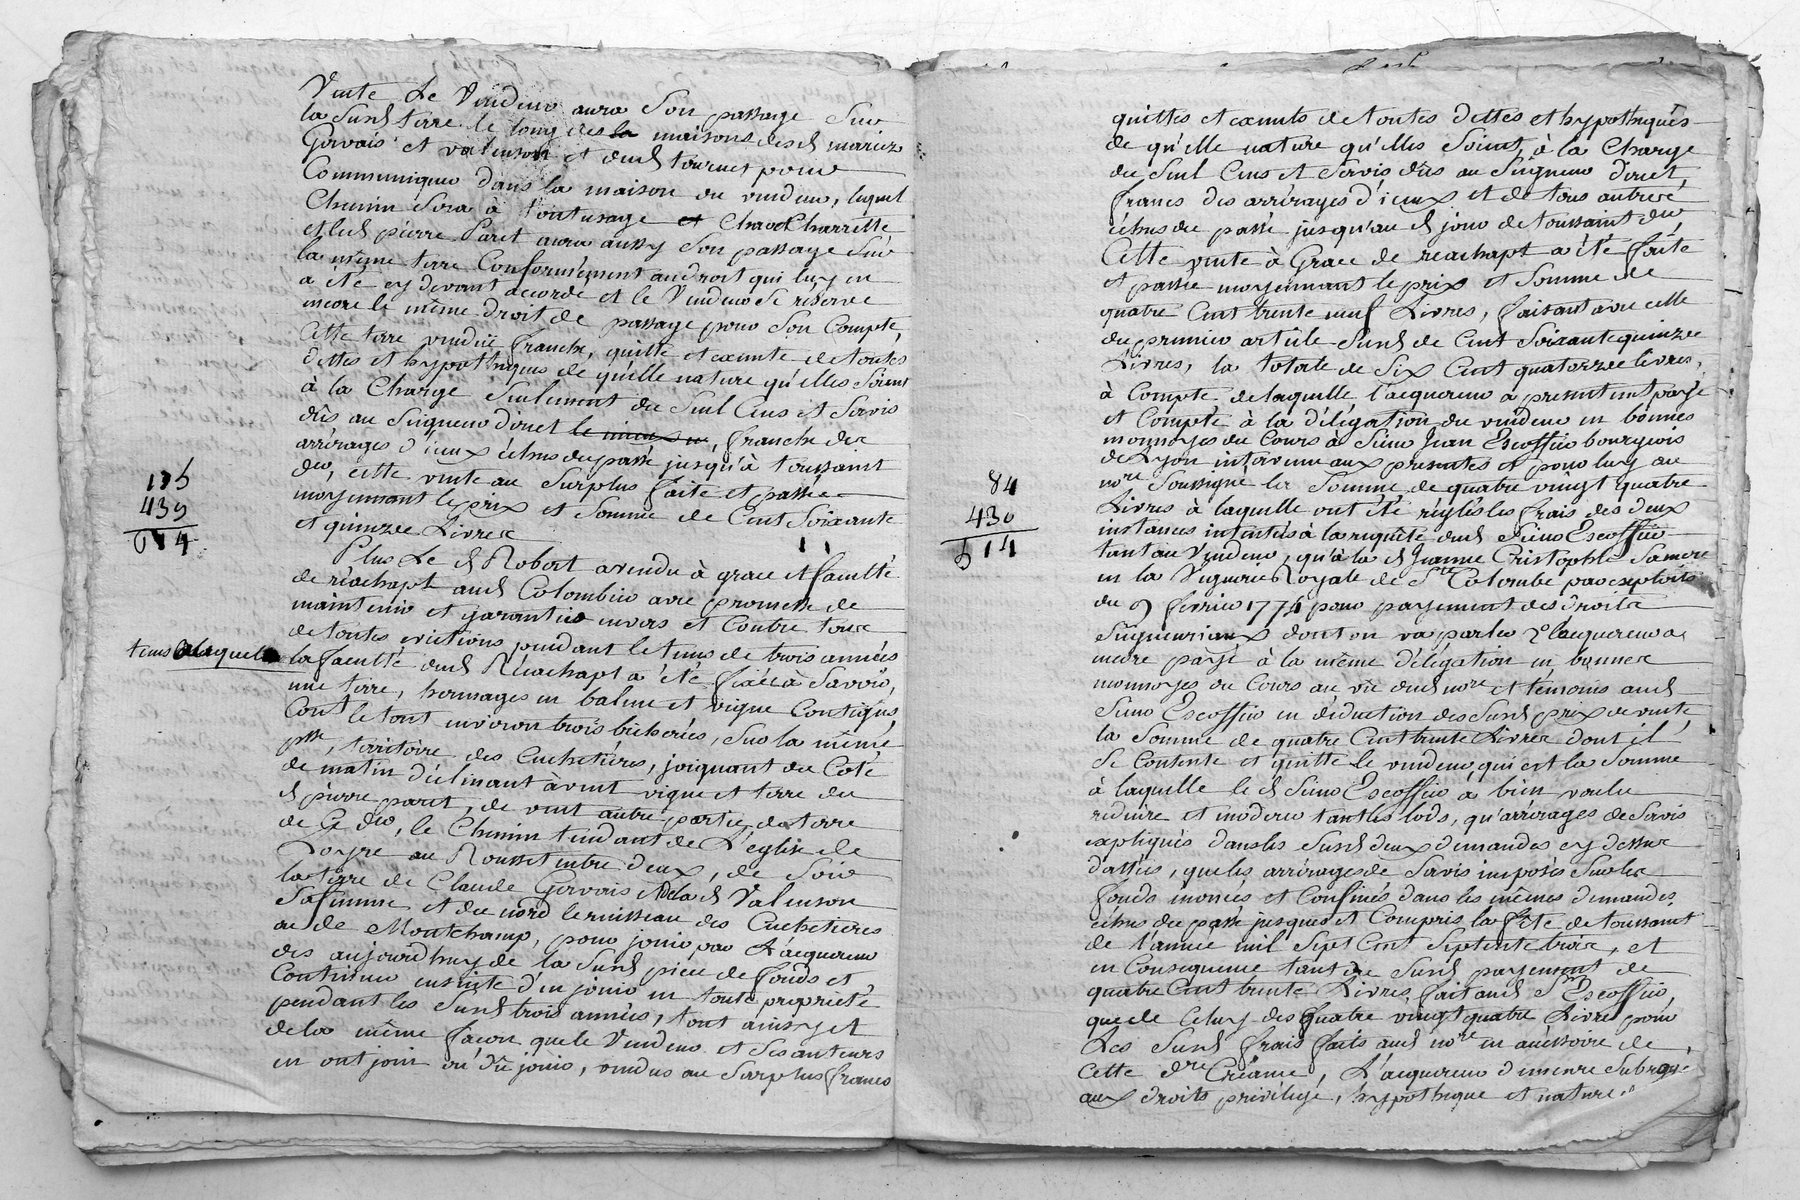 Vente Le Vendeur aura Son passage Sur
la Susd terre le long des la maisons desd mariez
Gervais et valenson et dud tournet pour
Communiquer dans la maison du vendeur, lequel
Chemin Sera à tout usage et Char et Charrette
et led pierre Paret aura aussy Son passage Sur
la même terre Conformément au droit qui luy en
a été cy devant accordé et le Vendeur Se réserve
encore le même droit de passage pour Son Compte,
Cette terre vendüe franche, quitte et exemte de toutes
dettes et hypothèques de quelle nature qu'elles Soient
à la Charge Seulement du Seul Cens et Servis
dûs au Seigneur direct, franche des
arrérages d'iceux échus du passé jusqu'à toussaint
der, cette vente au Surplus faite et passée
moyennant le prix et Somme de Cent Soixante
et quinze Livres
175
439
614
Plus Le d Robert a vendu à grace et faculté
de réachapt aud Colombier avec promesse de
maintenir et garantir envers et Contre tous
de toutes evictions pendant le tems de trois années
tems à laquelle
la faculté dud Réachapt a été fixée à Savoir,
une terre, hermages en balme et vigne Contigus,
Cont le tout environ trois bicherées, Sur la même
psse, territoire des Cuchetières, joignant du Coté
de matin déclinant à vent vigne et terre du
d pierre paret, de vent autre partie de terre
de Ce der, le Chemin tendant de L'église de
Loyre au Rousset entre deux, de Soir
la terre de Claude Gervais et de la d Valenson
Sa femme et du nord le ruisseau des Cuchetieres
ou de Montchamp, pour jouir par L'acquereur
des aujourd'huy de la Susd piece de fonds et
Continuer ensuite d'en jouir en toute propriété
pendant les Susd trois années, tout ainsy et
de la même façon que le Vendeur et Ses auteurs
en ont joui ou dû jouir, vendus au Surplus francs
quittes et exemts de toutes dettes et hypothèques
de qu'elle nature qu'elles Soient, à la Charge
du Seul Cens et Servis dûs au Seigneur direct,
francs des arrérages d'iceux et de tous autres
échus du passé jusqu'au d jour de toussaint der
Cette vente à Grace de réachapt a été faite
et passée moyennant le prix et Somme de
quatre Cent trente neuf Livres, faisant avec celle
du premier article Susd de Cent Soixante quinze
Livres, la totale de Six Cent quatorze livres,
à Compte de laquelle l'acquereur a presentement payé
et Compté à la délégation du vendeur en bonnes
monnoyes du Cours à Sieur Jean Escoffier bourgeois
de Lyon intervenu aux presentes et pour luy au
nore Soussigné la Somme de quatre vingt quatre
84
430
514
Livres à laquelle ont été réglés les frais des deux
instances intentées à la requête dud Sieur Escoffier
tant au Vendeur, qu'à la d Jeanne Cristophle Sa mere
en la Viguerie Royale de Ste Colombe par exploits
du 9 fevrier 1774 pour payement des droits
Seigneuriaux dont on va parler 2° l'acquereur a
encore payé à la même délégation en bonnes
monnoyes du Cours au vû dud nore et témoins aud
Sieur Escoffier en déduction des Susd prix de vente
la Somme de quatre Cent trente Livres dont il
Se Contente et quitte le vendeur, qui est la Somme
à laquelle le d Sieur Escoffier a bien voulu
reduire et moderer tant les lods, qu'arrérages de Servis
expliqués dans les Susd deux demandes cy dessus
dattées, que les arrérages de Servis imposés Sur les
fonds énoncés et Confinés dans les mêmes demandes
échus du passé jusques et Compris la fête de toussaint
de l'année mil Sept Cent Septente trois, et
en Consequence tant du Susd payement de
quatre Cent trente Livres fait aud Sr Escoffier
que de Celuy des quatre vingt quatre Livres pour
Les Susd frais faits aud nore en accessoire de
Cette dre Créance, L'acquereur demeure Subrogé
aux droits privilége, hypothèque et nature